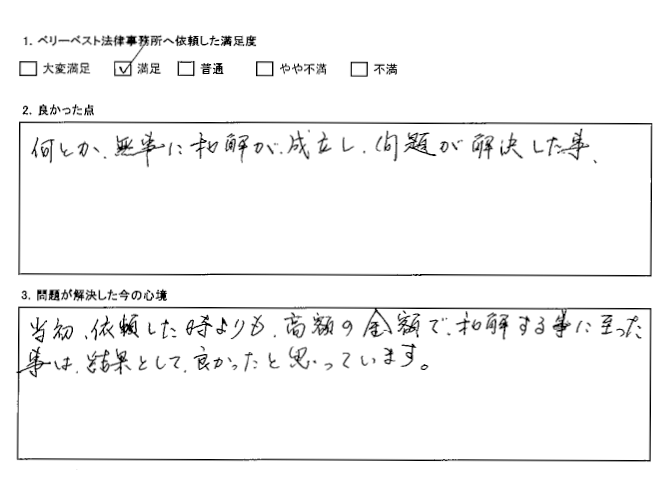 1. ベリーベスト法律事務所へ依頼した満足度
□ 大変満足 ☑ 満足 □ 普通 □ やや不満 □ 不満
2. 良かった点
何とか、無事に和解が、成立し、問題が解決した事、
3. 問題が解決した今の心境
当初、依頼した時よりも、高額の金額で、和解する事に至った
事は、結果として、良かったと思っています。